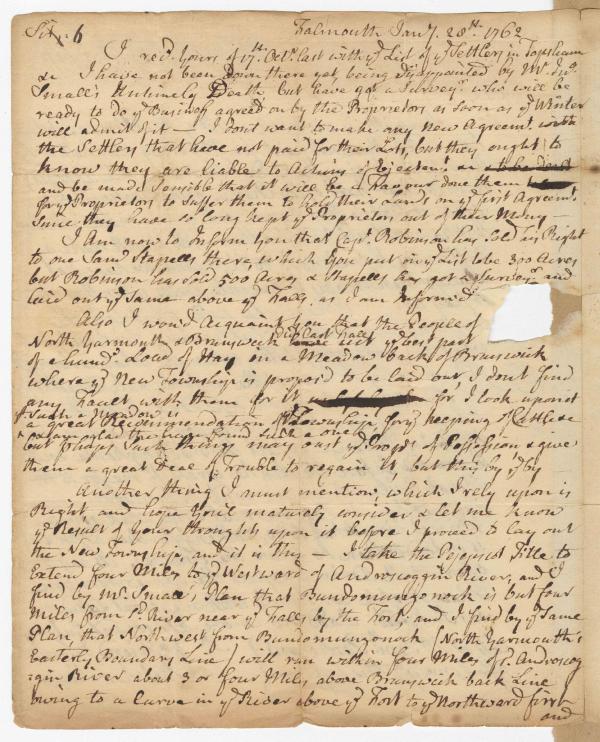 Sir 6 Falmouth Jany. 28th. 1762
I recd. yours of 17th. Octo. last with ye List of ye Settlers in Topsham
&c I have not been down there yet being Disappointed by Mr. Jno.
Small's Untimely Death but have got a Surveyr. who will be
ready to do ye Business agreed on by the Proprietors as soon as ye Winter
will admit of it — I don't want to make any New Agreemt. with
the Settlers that have not paid for their Lots, but they ought to
know they are liable to Actions of Ejectemt. &c
and be made Sensible that it will be a Favour done them
for ye Proprietors to Suffer them to hold their Lands on ye first Agreemt.
Since they have so long kept ye Proprietors out of their Mony —
I Am now to Inform you that Capt. Robinson has Sold his Right
to one Saml. Stapells there, which you put on ye List to be 300 Acres
but Robinson has Sold 500 Acres & Stapells has got a Surveyr. and
laid out ye Same above ye Falls, as I am Informd.
Also I wou'd Acquaint you that the People of
North Yarmouth & Brunswick did last Fall cut ye best part
of a hundd. Load of Hay on a Meadow back of Brunswick
where ye New Township is propos'd to be laid but I don't find
any Fault with them for it for I look upon it
Such a Meadow is
a great Recommendation of ye Township, for ye keeping of Cattle &c
& am glad they have found such a one
but perhaps Such things may oust ye Proprs. of Possession, & give
them a great deal of Trouble to regain it, but this by ye by
Another thing I must mention, which I rely upon is
Right, and hope you'l maturely consider & let me know
ye Result of your thoughts upon it before I proceed to lay out
the New Township, and it is this — I take the Pejepscot Title to
Extend four Miles to ye Westward of Androscoggin River, and I
find by Mr. Small's Plan that Bundomungonock is but four
Miles from sd. River near ye Falls by the Fort, and I find by ye Same
Plan, that Northwest from Bundomungonock (North Yarmouth's
Easterly Boundary Line) will run within four Miles of sd. Androscog
:gin River about 3 or four Miles above Brunswick back Line
owing to a Curve in ye River above ye Fort to ye Northward first
and